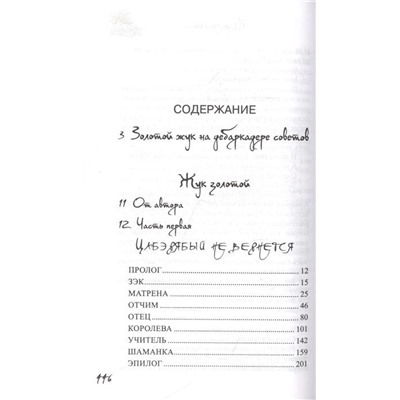 СОДЕРЖАНИЕ
3 Золотой жук на дебаркадере советов
Жук золотой
11 От автора
12 Часть первая
ЦАБЭРЯБЫЙ НЕ ВЕРНЕТСЯ
ПРОЛОГ 12
ЗЭК 15
МАТРЕНА 25
ОТЧИМ 46
ОТЕЦ 80
КОРОЛЕВА 101
УЧИТЕЛЬ 142
ШАМАНКА 159
ЭПИЛОГ 201
446